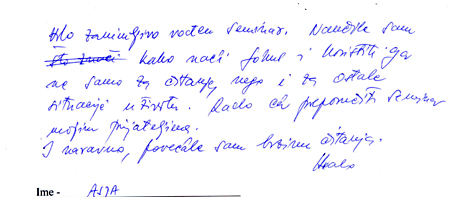 Vrlo zanimljivo vođen seminar. Naučila sam
što znači kako naći fokus i koristiti ga
ne samo za čitanje, nego i za ostale
situacije u životu. Rado ću preporučiti seminar
mojim prijateljima.
I naravno, povećala sam brzinu čitanja.
Hvala
Ime - ASJA